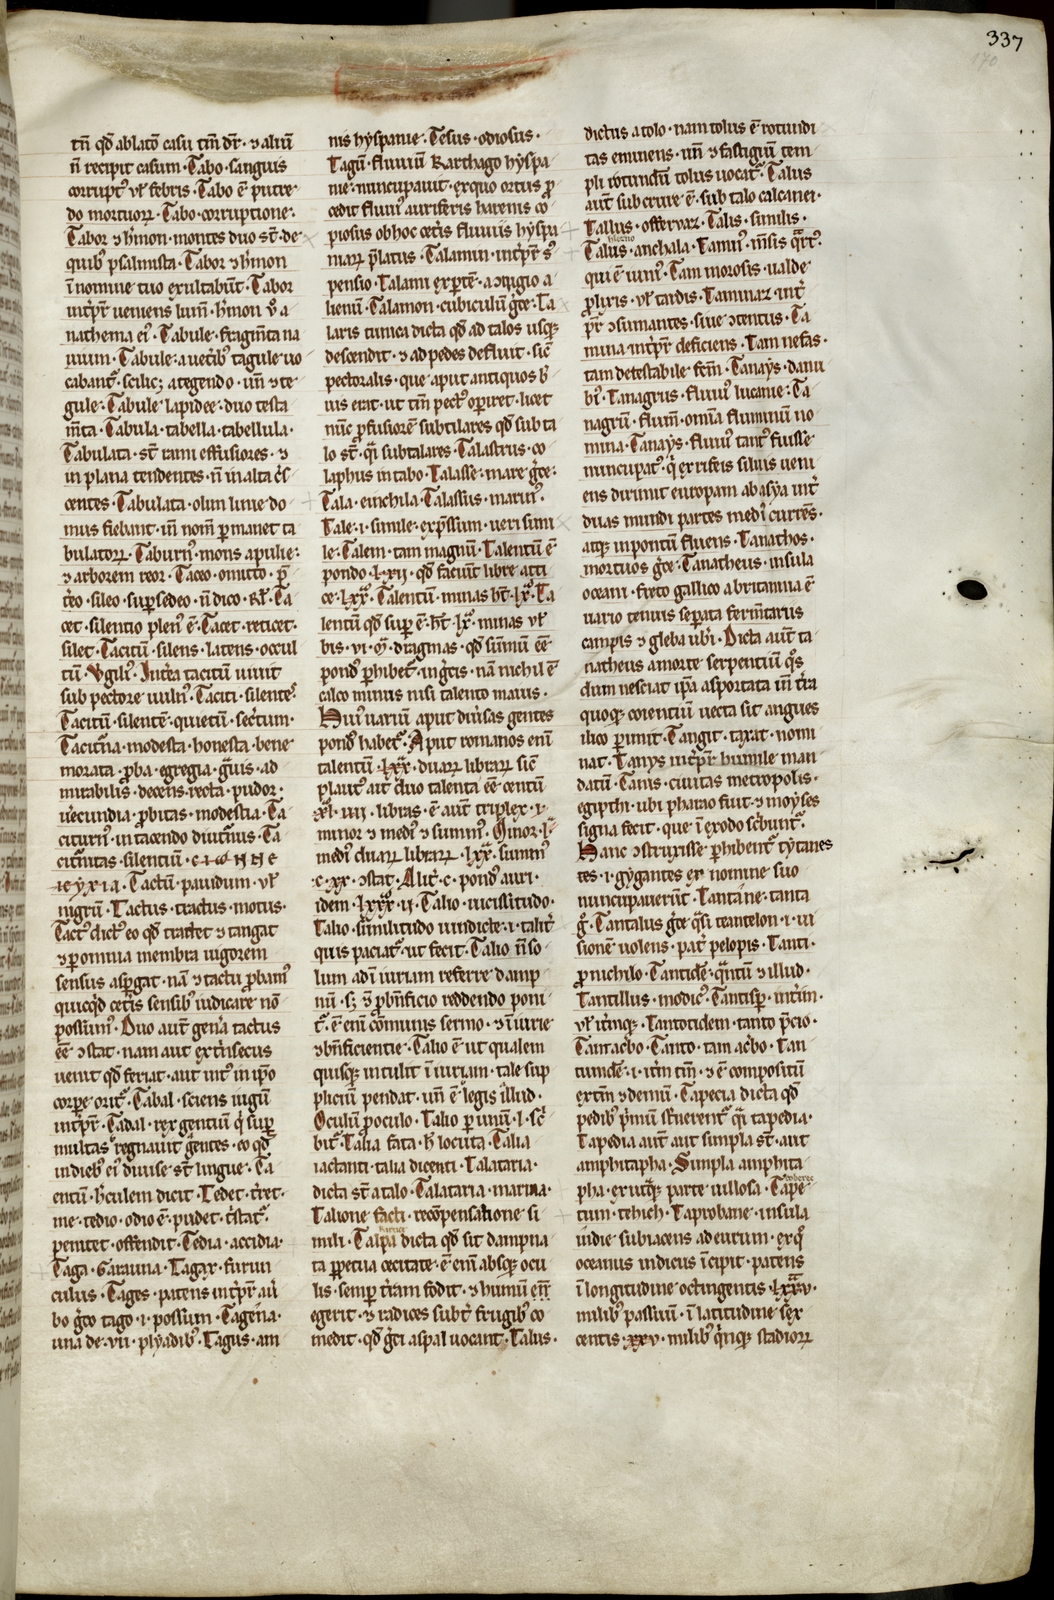 337
170
tn̄ qđ ablatō casu tm̄ dr̄ · ⁊ aliū
n̄ recipit casum · Tabo · sanguis
corrupt᷒ ul̓ febris · Tabo ē putre
do mortuoꝝ · Tabo · corruptione ·
Tabor ⁊ h̓mon · montes duo st̄ · de
quib᷒ psalmista · Tabor ⁊ h̓mon
ī nomine tuo exultabūt · Tabor
int̓pr̄ ueniens lum̄ · h̓mon u̓ a
nathema ei᷒ · Tabule · fragm̄ta na
uium · Tabule · a uet̓ib᷒ tagule uo
cabant᷑ · scilic; a tegendo · un̄ ⁊ te
gule · Tabule lapidee · duo testa
m̄ta · Tabula · tabella · tabellula ·
Tabulata · st̄ rami effusiores · ⁊
in plana tendentes · n̄ in alta c̓s
centes · Tabulata · olim sine do
mus fiebant · un̄ nom̄ ꝑmanet ta
bulatoꝝ · Taburn᷒ · mons apulie ·
⁊ arborem reor · Taceo · omitto · p̄
t̓eo · sileo · suꝑsedeo · n̄ dico · Ta
cet · silentio plen᷒ ē · Tacet · reticet ·
silet · Tacitū · silens · latens · occul
tū · Vgili᷒ · Int̓ea tacitū uiuit
sub pectore uuln᷒ · Taciti · silentes
Tacitū · silentē · quietū · sec̓tum ·
Tacit̓na · modesta · honesta · bene
morata · ꝓba · egregia · g̓uis · ad
mirabilis · decens · recta · pudor ·
uerecundia · ꝓbitas · modestia · Ta
citurn᷒ · in tacendo diut̓nus · Ta
cit̓nitas · silentiū ·
Tactū · pauidum · ul̓
nigrū · Tactus · tractus · motus ·
Tact᷒ dict᷒ eo qđ tractet ⁊ tangat
⁊ ꝑ omnia membra uigorem
sensus aspergat · nā ⁊ tactu ꝓbam᷒
quicq̓d cet̓is sensib᷒ iudicare nō
possum᷒ · Duo aut̄ gen̓a tactus
ēē ꝯstat · nam aut ext̓nsecus
uenit qđ feriat · aut int᷒ in ip̄o
corpe orit᷑ · Tabal · sciens iugū
int̓pr̄ · Tadal · rex gentiū q̓ suꝑ
multas regnauit gentes · eo qđ
in dieb᷒ ei᷒ diuise st̄ lingue · Ta
entū · h̓culem dicit · Tedet · t̓ret ·
me · tedio · odio ē · pudet · t̓stat᷑ ·
penitet · offendit · Tedia · accidia ·
Taga · Garauna · Tagax · furun
culus · Tages · patens int̓pr̄ aū
bo gc̄o tago · i · possum · Tagena ·
una de · vii · plyadib᷒ · Tagus · am
nis hyspanie · Tesus · odiosus ·
Tagū · fluuiū Karthago hyspa
nie · nuncupauit · ex quo ortus ꝓ
cedit fluui᷒ auriferis harenis co
piosus ob hoc cet̓is fluuiis hyspa
niaꝝ p̄latus · Talamin · int̓pr̄ s᷒
pensio · Talami exꝑtē · a ꝯiugio a
lienū · Talamon · cubiculū gc̄e · Ta
laris tunica dicta qđ ad talos usqꝫ
descendit · ⁊ ad pedes defluit · sic̄
pectoralis · que aput antiquos b̓
uis erat · ut tm̄ pect᷒ opiret · licet
nūc ꝓfusiorē subtilares qđ sub ta
lo st̄ · q̓i subtalares · Talastrus · co
laphus in tabo · Talasse · mare gc̄e ·
Tala · emchila · Talassus · marin᷒ ·
Tale · i · simile · exp̄ssum · ueri simi
le · Talem · tam magnū · Talentū ē
pondo · lxii · qđ faciūt libre atti
ce · lxx · Talentū · minas ht̄ · lx · Ta
lentū qđ suꝑ ē · ht̄ · lx · minas ul̓
bis · vi · oȳ · dragmas · qđ sūmū ēē
pond᷒ phibet᷑ · in gc̄is · nā nichil ē
calco minus nisi talento maius ·
Hui᷒ uariū aput diu̓sas gentes
pond᷒ habet᷑ · Aput romanos enī
talentū · lxx · duaꝝ libraꝝ sic̄
plaut᷒ ait duo talenta ēē centū
xl · iiii · libras · ē aut̄ triplex · i ·
minor ⁊ medi᷒ ⁊ summ᷒ · Minor · l ·
medi᷒ duaꝝ libraꝝ · lxx · summ᷒
· c · xx · ꝯstat · Alit̓ · c · pond᷒ auri ·
idem · lxxx · ii · Talio · uicissitudo ·
Talio · similitudo uindicte · i · talit̓
quis paciat᷑ · ut fecit · Talio n̄ so
lum ad īiuriam referre damp
nū · s; ⁊ ꝓ bn̄ficio reddendo poni
t᷑ · ē enī cōmunis sermo · ⁊ īiurie
⁊ bn̄ficientie · Talio ē ut qualem
quisqꝫ intulit īiuriam · tale sup
pliciū pendat · un̄ ē legis illud ·
Oculū ꝓ oculo · Talio ꝑ unū · l · sc̓
bit᷑ · Talia fata · h̄ locuta · Talia
iactanti · talia dicenti · Talataria ·
dicta st̄ a talo · Talataria · marina ·
Talione facti · recōpensatione si
mili · Talpa dicta qđ sit dampna
ta ꝑpetua cecitate · ē enī absqꝫ ocu
lis · semp t̓ram fodit · ⁊ humū
egerit · ⁊ radices subt̓ frugib᷒ co
medit · qđ gc̄i aspal uocant · Talus ·
dictus a tolo · nam tolus ē rotundi
tas eminens · un̄ ⁊ fastigiū tem
pli rotundū tolus uocat᷑ · Talus
aut̄ sub crure ē · sub talo calcanei ·
Tallus · offeruaꝝ · Talis · similis ·
Talus · anchala · Tamn᷒ · m̄sis q̓rt᷒ ·
qui ē iuni᷒ · Tam morosis · ualde
ꝓlixis · ul̓ tardis · Taminaz int̓
pr̄ ꝯsumantes · siue ꝯtentus · Ta
mna int̓pr̄ deficiens · Tam nefas ·
tam detestabile fcm̄ · Tanays · danu
bi᷒ · Tanagrus · fluui᷒ lucanie · Ta
nagrū · flum̄ · omīa fluminū no
mina · Tanays · fluui᷒ tant᷒ fuisse
nuncupat᷑ · q̓ ex rifeis siluis ueni
ens dirimit europam ab asya int̓
duas mundi partes medi᷒ currēs ·
atqꝫ in pontū fluens · Tanathos ·
mortuos gc̄e · Tanatheus · insula
oceani · freto gallico a britannia ē
uario tenuis seꝑata ferm̄tariis
campis ⁊ gleba ubi · Dicta aut̄ ta
natheus a morte serpentiū q̓s
dum nesciat ip̄a asportata in t̓ra
quoqꝫ coientiū uecta sit angues
ilico ꝑimit · Tangit · taxat · nomi
nat · Tanys int̓pr̄ humile man
datū · Tanis · ciuitas metropolis ·
egipthi · ubi pharao fuit · ⁊ moyses
signa fecit · que ī exodo sc̓bunt᷑ ·
Hanc ꝯstruxisse ꝑhibent᷑ tytanes
tes · i · gygantes ex nomine suo
nuncupauerūt · Tantane · tanta
g̓ · Tantalus gc̄e q̓si teantelon · i · ui
sionē uolens · pat̓ pelopis · Tanti ·
ꝓ nichilo · Tantidē · q̓ntū ⁊ illud ·
Tantillus · modic᷒ · Tantisꝑ · int̓im ·
ul̓ it̓umqꝫ · Tantotidem · tanto p̄cio ·
Tantac̓bo · Tanto · tam ac̓bo · Tan
tundē · i · it̓m tm̄ · ⁊ ē compositū
extm̄ ⁊ demū · Tapecia dicta qđ
pedib᷒ p̓mū st̓nerent᷑ q̓i tapedia ·
Tapedia aut̄ aut simpla st̄ · aut
amphitapha · Simpla amphita
pha · ex utqꝫ parte uillosa · Tape
tum · tebich · Taprobane · insula
indie subiacens ad eurum · ex q̓
oceanus indicus īcipit · patens
ī longitudine octingentis · lxxv ·
milib᷒ passuū · ī latitudine sex
centis · xxv · milib᷒ q̓nqꝫ stadioꝝ